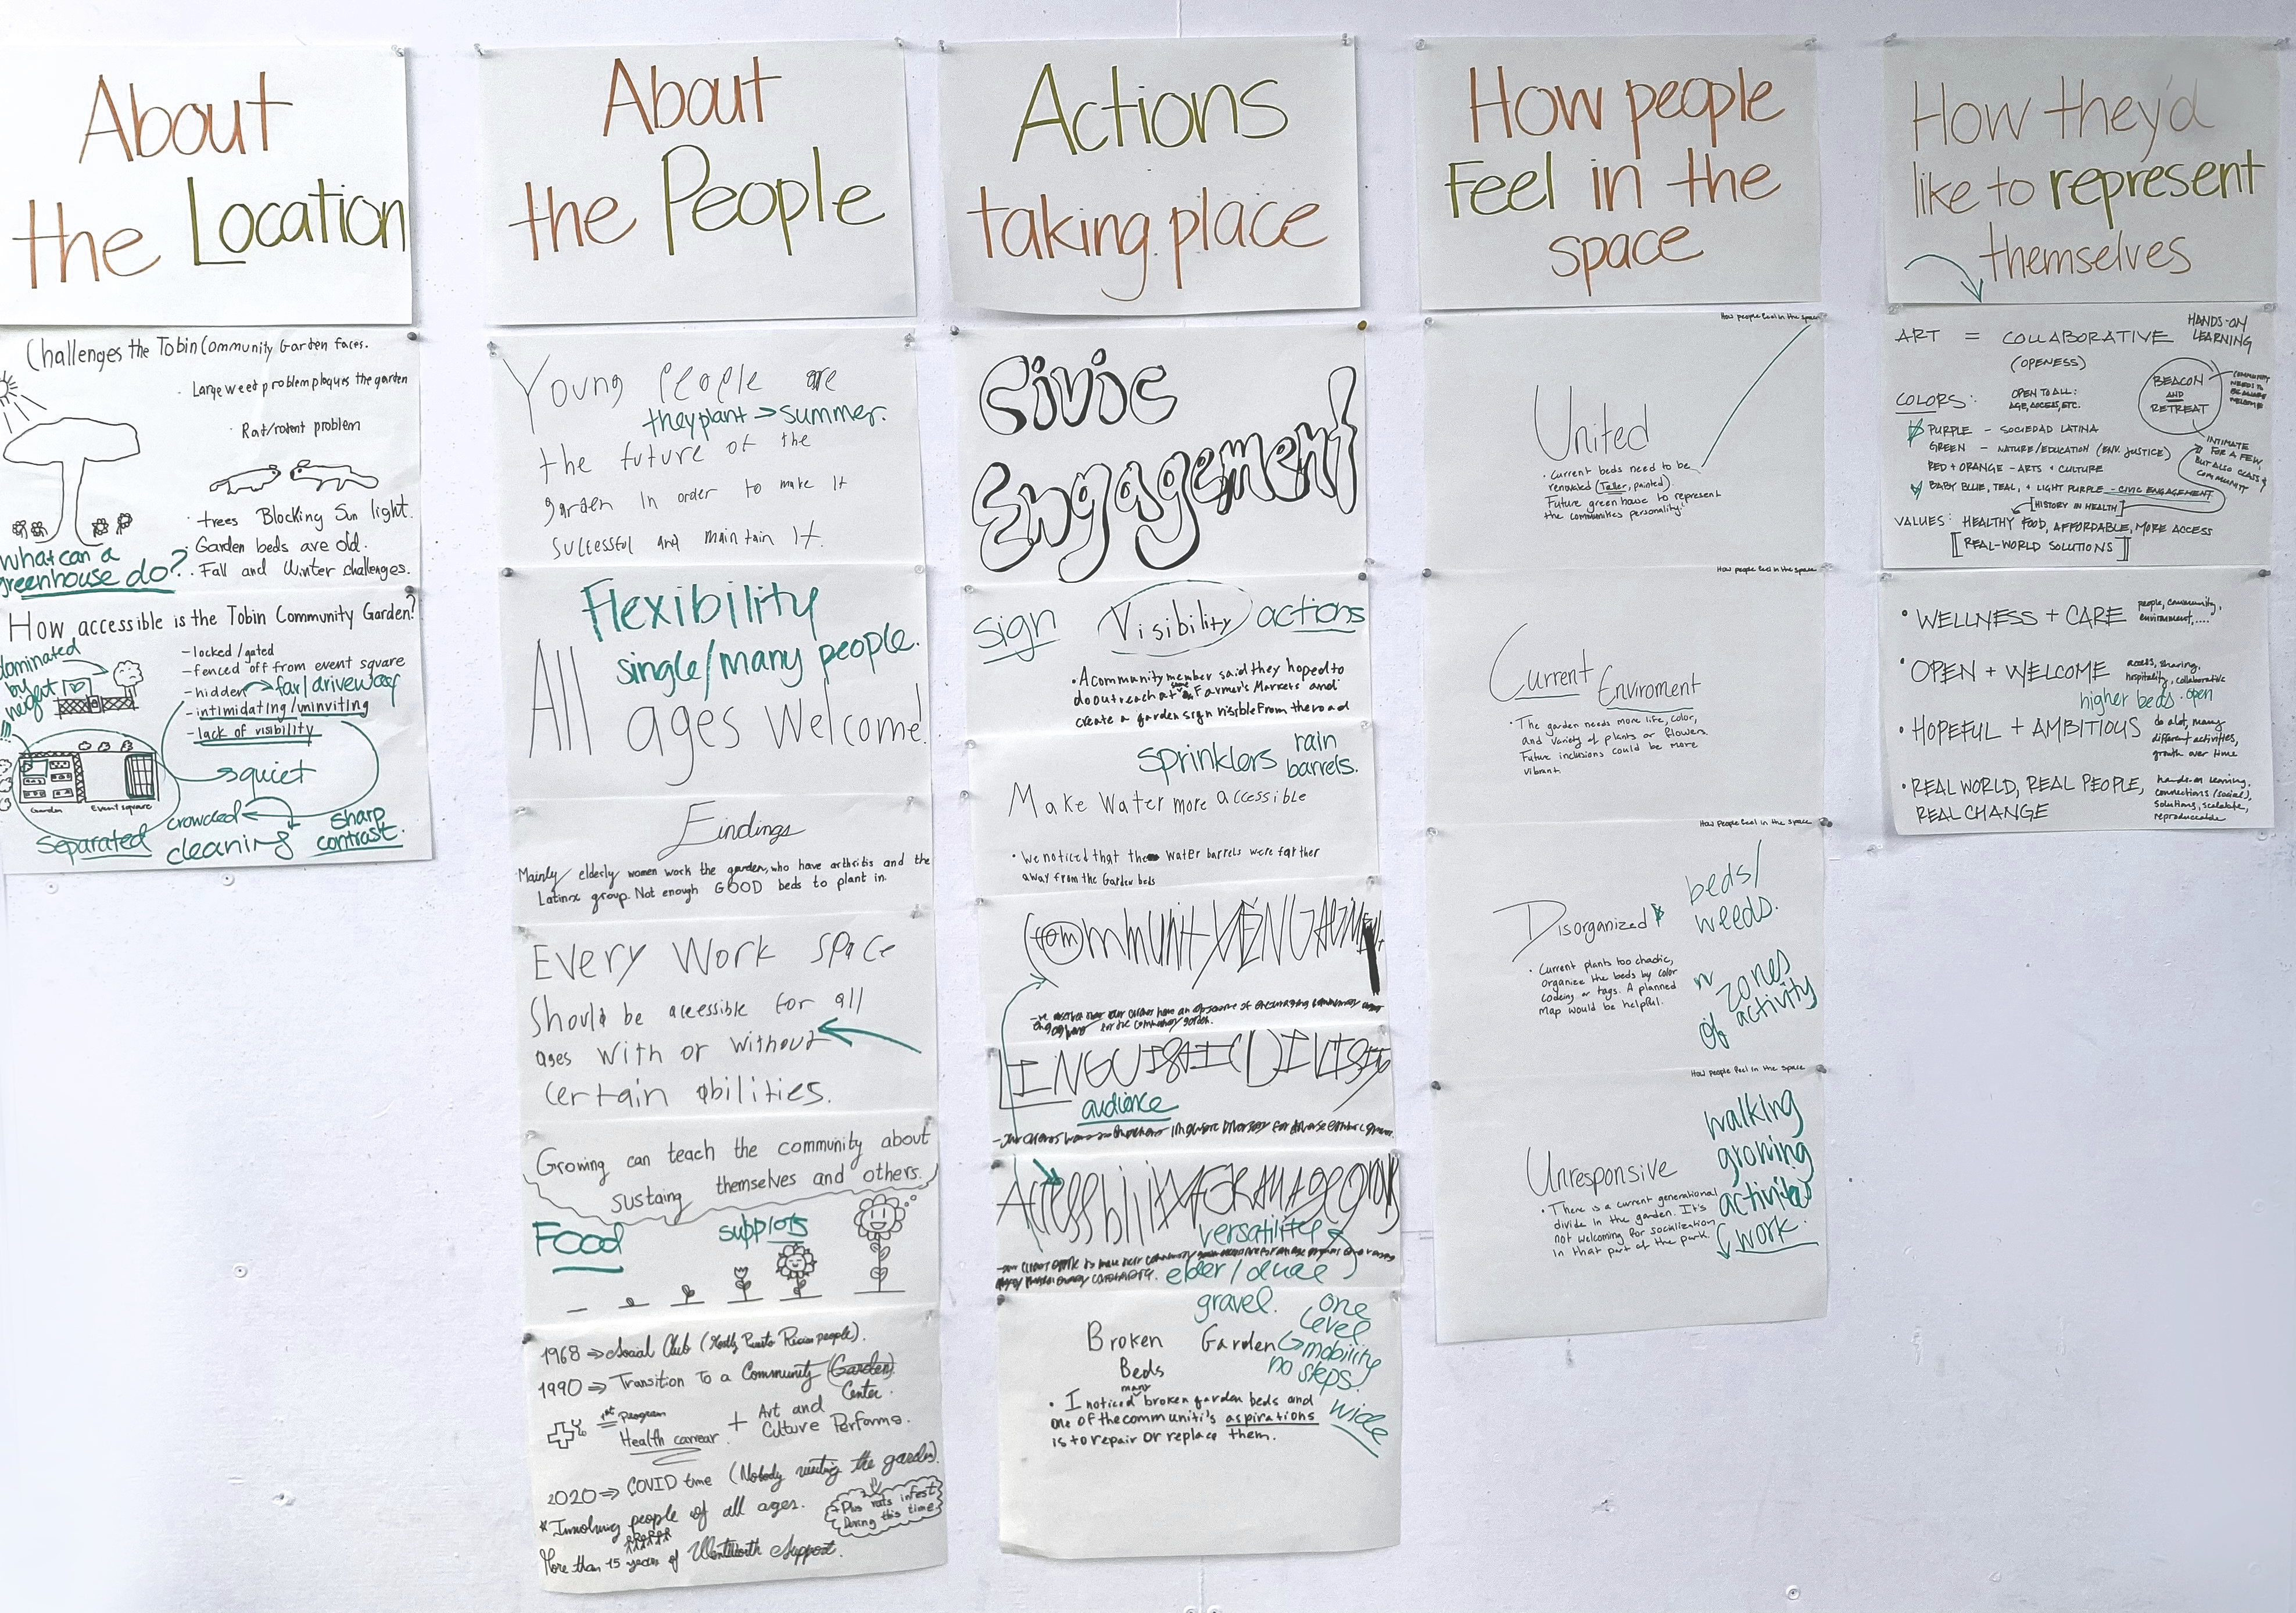 About
the Location
Challenges the Tobin Community Garden faces.
· Large weed problem plaques the garden
· Rat/rodent problem
· trees Blocking Sun light.
· Garden beds are old.
· Fall and Winter challenges.
What can a
greenhouse do?
How accessible is the Tobin Community Garden?
dominated
by
- locked/gated
- fenced off from event square
- hidden → far/driveway
- intimidating/uninviting
- lack of visibility
quiet
Garden
Event square
Separated
crowded
cleaning
sharp
contrast.
About
the People
Young People are
they plant → summer.
the future of the
garden in order to make It
successful and maintain It.
Flexibility
single/many people.
All ages Welcome!
Findings
Mainly elderly women work the garden, who have arthritis and the
Latinx group. Not enough GOOD beds to plant in.
Every Work space
Should be accessible for all
ages with or without
certain abilities.
Growing can teach the community about
sustaing themselves and others.
Food
supports
1968 ⇒ Social Club (Mostly Puerto Rican people).
1990 ⇒ Transition To a Community (Garden)
Center.
1st Program
Health carrear. + Art and
Culture Performs.
2020 ⇒ COVID time (Nobody visiting the garden).
* Involving people of all ages.
Plus rats infest
During this time
More than 15 years of Wentworth Support.
Actions
taking place
Civic
Engagement
sign Visibility actions
· A community member said they hoped to
do outreach at some Farmer's Markets and
create a garden sign visible from the road
sprinklers rain
barrels.
Make Water more accessible
· We noticed that the water barrels were farther
away from the Garden beds
audience
versatility
elder/
gravel.
one
level
mobility
no steps.
wide
Broken Garden
Beds
· I noticed many broken garden beds and
one of the communiti's aspirations
is to repair or replace them.
How people
Feel in the
space
How people feel in the space
United
· Current beds need to be
renovated (Taller, painted).
Future green house to represent
the communities personality.
How people feel in the space
Current Enviroment
· The garden needs more life, color,
and variety of plants or flowers.
Future inclusions could be more
vibrant.
How People feel in the space
Disorganized
beds/
weeds.
· Current plants too chaotic,
organize the beds by color
codeing or tags. A planned
map would be helpful.
zones
of activity
How people feel in the space
Unresponsive
· There is a current generational
divide in the garden. It's
not welcoming for socialization
in that part of the park.
walking
growing
activities
work.
How they'd
like to represent
themselves
ART = COLLABORATIVE HANDS-ON
LEARNING
(OPENESS)
OPEN TO ALL:
AGE, ACCESS, ETC.
BEACON
AND
RETREAT
COLORS:
PURPLE - SOCIEDAD LATINA
GREEN - NATURE/EDUCATION (ENV. JUSTICE)
RED + ORANGE - ARTS + CULTURE
BABY BLUE, TEAL, + LIGHT PURPLE - CIVIC ENGAGEMENT
INTIMATE
FOR A FEW,
BUT ALSO
COMMUNITY
[HISTORY IN HEALTH]
VALUES: HEALTHY FOOD, AFFORDABLE, MORE ACCESS
[REAL-WORLD SOLUTIONS]
· WELLNESS + CARE people, community,
environment,....
· OPEN + WELCOME access, sharing,
hospitality, collaborative
higher beds · open
· HOPEFUL + AMBITIOUS do a lot, many
different activities,
growth over time
· REAL WORLD, REAL PEOPLE,
REAL CHANGE
hands-on learning,
connections (social),
solutions, scalable,
reproduceable